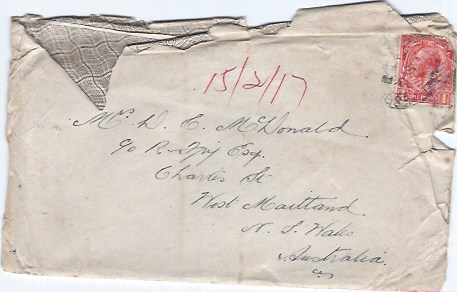 15/2/17
Mrs. D. E. McDonald.
c/o R. Esq.
Charles St
West Maitland.
N. S. Wales
Australia.